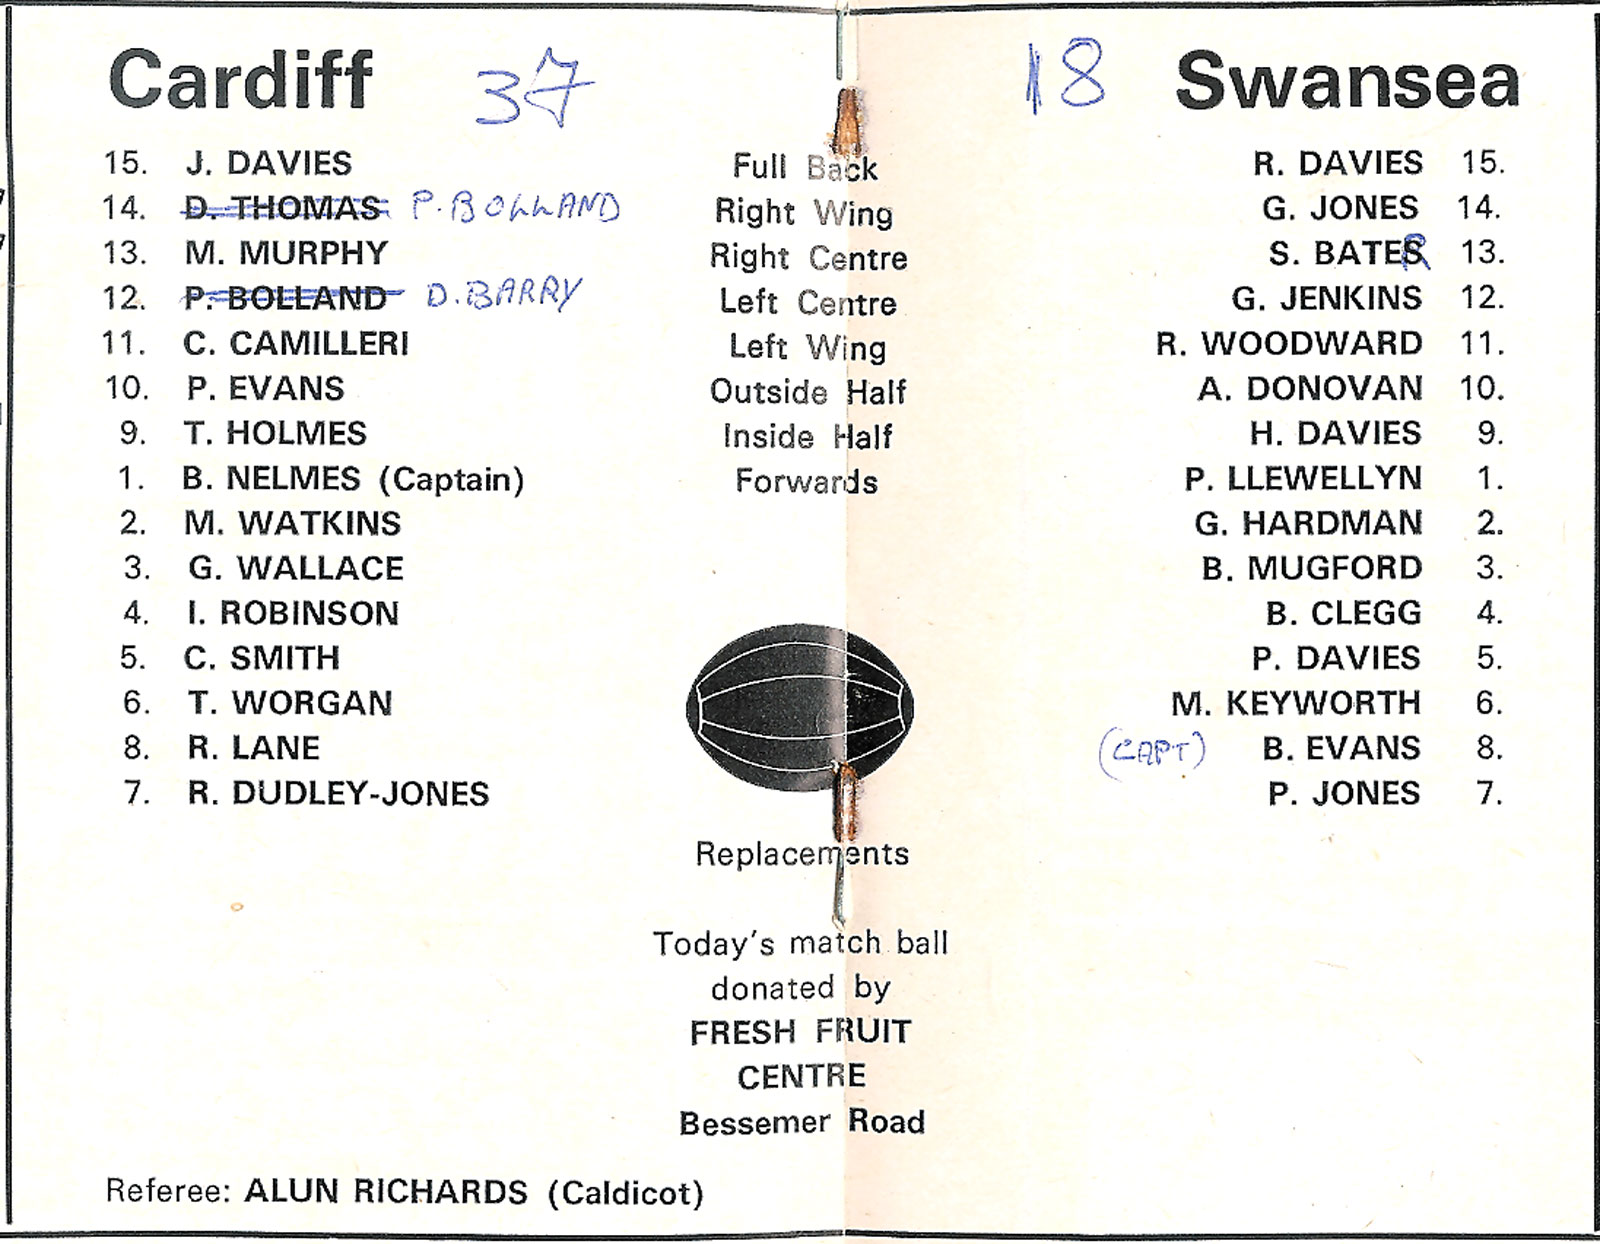 Cardiff 37 18 Swansea
15. J. DAVIES Full Back R. DAVIES 15.
14. D. THOMAS P. BOLLAND Right Wing G. JONES 14.
13. M. MURPHY Right Centre S. BATES R 13.
12. P. BOLLAND D. BARRY Left Centre G. JENKINS 12.
11. C. CAMILLERI Left Wing R. WOODWARD 11.
10. P. EVANS Outside Half A. DONOVAN 10.
9. T. HOLMES Inside Half H. DAVIES 9.
1. B. NELMES (Captain) Forwards P. LLEWELLYN 1.
2. M. WATKINS G. HARDMAN 2.
3. G. WALLACE B. MUGFORD 3.
4. I. ROBINSON B. CLEGG 4.
5. C. SMITH P. DAVIES 5.
6. T. WORGAN M. KEYWORTH 6.
8. R. LANE (CAPT) B. EVANS 8.
7. R. DUDLEY-JONES P. JONES 7.
Replacements
Today's match ball
donated by
FRESH FRUIT
CENTRE
Bessemer Road
Referee: ALUN RICHARDS (Caldicot)